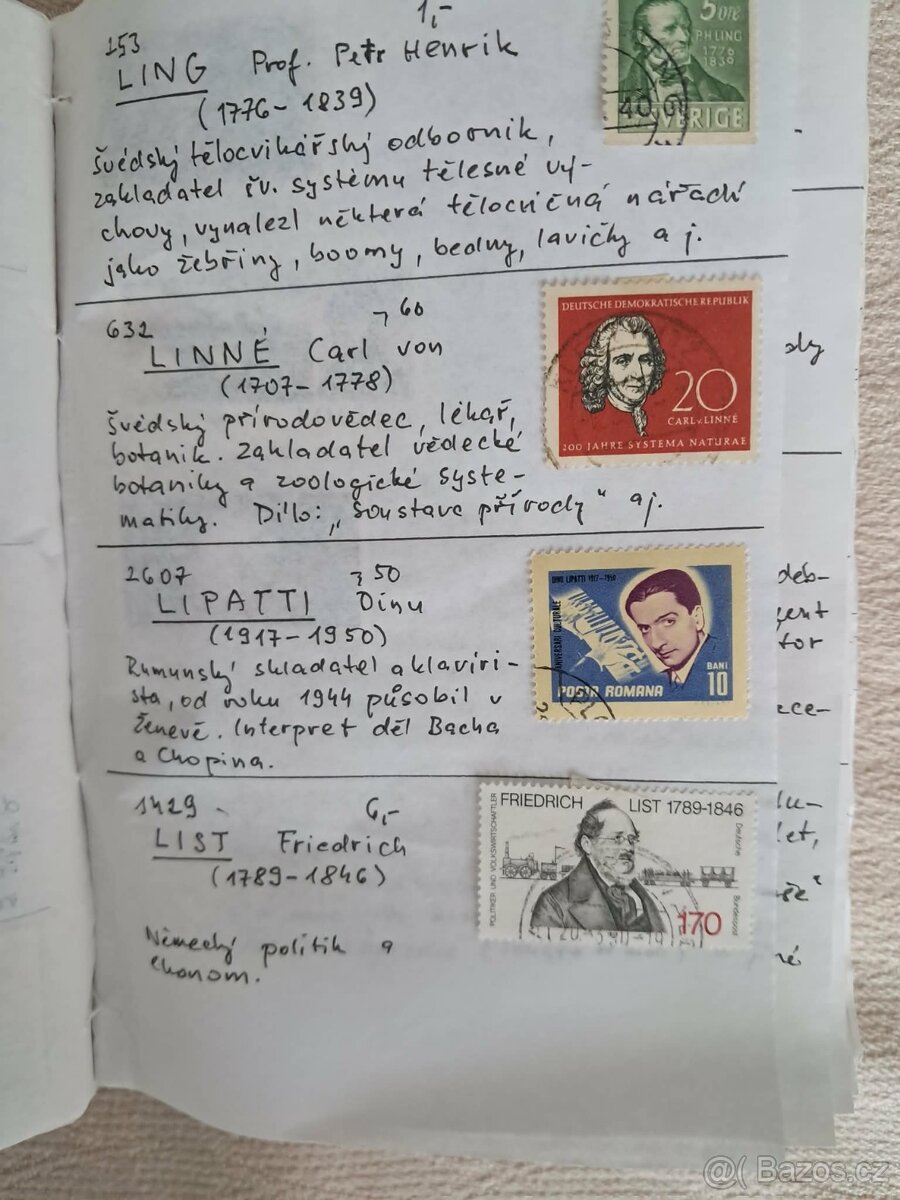 1,-
153
LING Prof. Petr Henrik
(1776-1839)
5 öre
PH LING
1776
1839
SVERIGE
švédský tělocvikářský odborník,
zakladatel šv. systému tělesné vý-
chovy, vynalezl některá tělocvičná nářadí
jako žebřiny, boomy, bedny, lavičky a j.
632
,60
LINNÉ Carl von
(1707-1778)
švédský přírodovědec, lékař,
botanik. Zakladatel vědecké
botaniky a zoologické syste-
matiky. Dílo: „Soustava přírody" aj.
DEUTSCHE DEMOKRATISCHE REPUBLIK
20
CARL v. LINNÉ
200 JAHRE SYSTEMA NATURAE
2607
,50
LIPATTI Dinu
(1917-1950)
Rumunský skladatel a klaviri-
sta, od roku 1944 působil v
Ženevě. Interpret děl Bacha
a Chopina.
DINU LIPATTI 1917-1950
ANIVERSARI CULTURALE
BANI
10
POSTA ROMANA
1429
6,-
LIST Friedrich
(1789-1846)
Německý politik a
ekonom.
FRIEDRICH LIST 1789-1846
POLITIKER UND VOLKSWIRTSCHAFTLER
Deutsche Bundespost
170
dy
deb-
gent
tor
ece-
lu-
let,
né
@( Bazos.cz